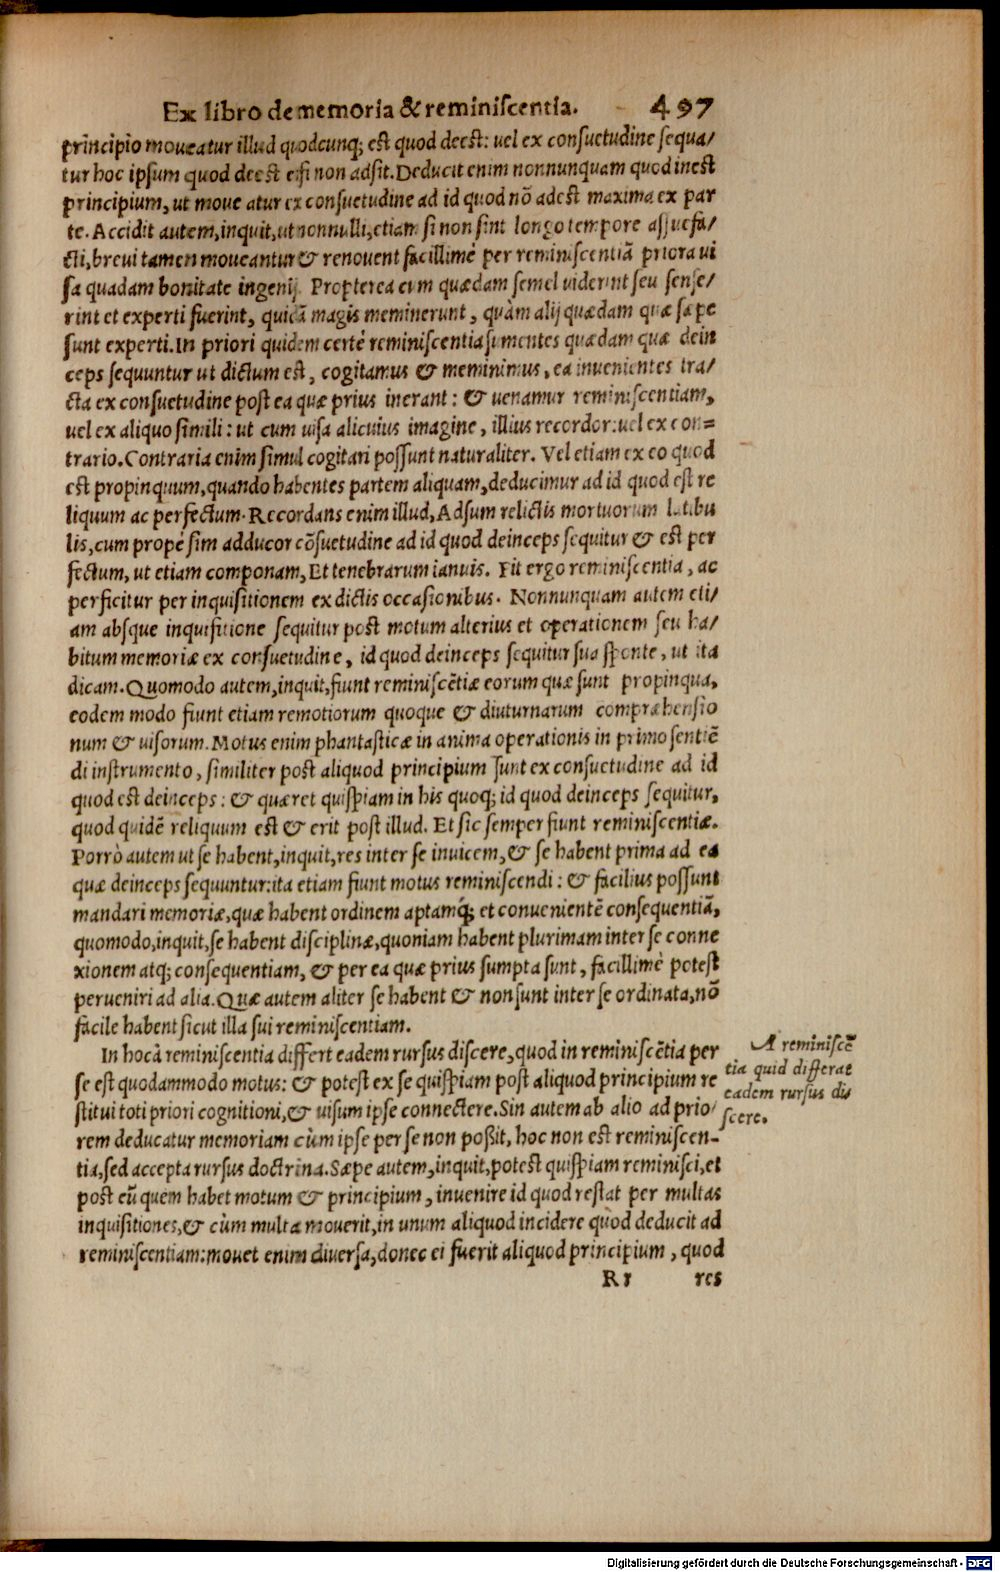 Ex libro de memoria & reminiscentia. 497
principio moveatur illud quodcunq; est quod deest: vel ex consuetudine sequa/
tur hoc ipsum quod deest etsi non adsit. Deducit enim nonnunquam quod inest
principium, ut move atur ex consuetudine ad id quod nō adest maxima ex par
te. Accidit autem, inquit, ut nonnulli, etiam si non sint longo tempore assuefa/
cti, brevi tamen moveantur & renovent facillimè per reminiscentiā priora vi
sa quadam bonitate ingenij. Propterea cum quædam semel viderint seu sense/
rint et experti fuerint, quidā magis meminerunt, quàm alij quædam quæ sæpe
sunt experti. In priori quidem certè reminiscentia sumentes quædam quæ dein
ceps sequuntur ut dictum est, cogitamus & meminimus, ea invenientes tra/
cta ex consuetudine post ea quæ prius inerant: & venamur reminiscentiam,
vel ex aliquo simili: ut cum visa alicuius imagine, illius recordor: vel ex con=
trario. Contraria enim simul cogitari possunt naturaliter. Vel etiam ex eo quod
est propinquum, quando habentes partem aliquam, deducimur ad id quod est re
liquum ac perfectum. Recordans enim illud, Adsum relictis mortuorum latibu
lis, cum propè sim adducor cōsuetudine ad id quod deinceps sequitur & est per
fectum, ut etiam componam, Et tenebrarum ianuis. Fit ergo reminiscentia, ac
perficitur per inquisitionem ex dictis occasionibus. Nonnunquam autem eti/
am absque inquisitione sequitur post motum alterius et operationem seu ha/
bitum memoriæ ex consuetudine, id quod deinceps sequitur sua sponte, ut ita
dicam. Quomodo autem, inquit, fiunt reminiscētiæ eorum quæ sunt propinqua,
eodem modo fiunt etiam remotiorum quoque & diuturnarum compræhensio
num & visorum. Motus enim phantasticæ in anima operationis in primo sentiē
di instrumento, similiter post aliquod principium sunt ex consuetudine ad id
quod est deinceps: & quæret quispiam in his quoq; id quod deinceps sequitur,
quod quidē reliquum est & erit post illud. Et sic semper fiunt reminiscentiæ.
Porrò autem ut se habent, inquit, res inter se invicem, & se habent prima ad ea
quæ deinceps sequuntur: ita etiam fiunt motus reminiscendi: & facilius possunt
mandari memoriæ, quæ habent ordinem aptamq́; et convenientē consequentiā,
quomodo, inquit, se habent disciplinæ, quoniam habent plurimam inter se conne
xionem atq; consequentiam, & per ea quæ prius sumpta sunt, facillimè potest
perveniri ad alia. Quæ autem aliter se habent & non sunt inter se ordinata, nō
facile habent sicut illa sui reminiscentiam.
In hoc à reminiscentia differt eadem rursus discere, quod in reminiscētia per
se est quodammodo motus: & potest ex se quispiam post aliquod principium re
stitui toti priori cognitioni, & visum ipse connectere. Sin autem ab alio ad prio/
rem deducatur memoriam cùm ipse per se non poßit, hoc non est reminiscen-
tia, sed accepta rursus doctrina. Sæpe autem, inquit, potest quispiam reminisci, et
post eū quem habet motum & principium, invenire id quod restat per multas
inquisitiones, & cùm multa moverit, in unum aliquod incidere quod deducit ad
reminiscentiam: movet enim diversa, donec ei fuerit aliquod principium, quod
Rr res
A reminiscē
tia quid differat
eadem rursus di/
scere.
Digitalisierung gefördert durch die Deutsche Forschungsgemeinschaft - DFG